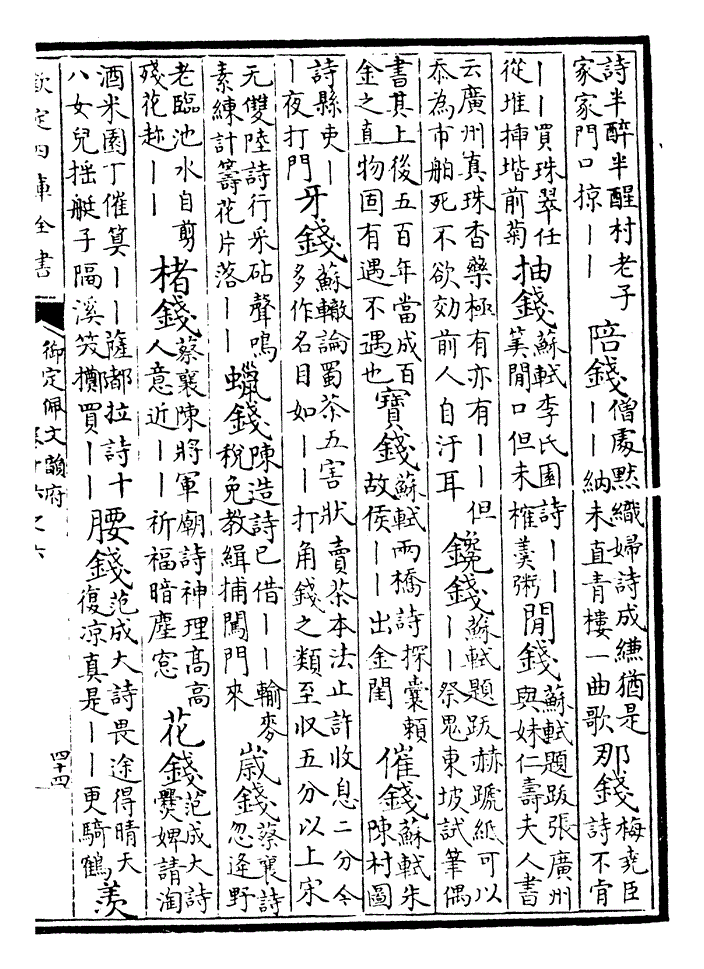 詩半醉半醒村老子
家家門口掠丨丨
陪錢
僧處黙織婦詩成縑猶是
丨丨納未直青樓一曲歌
那錢
梅堯臣
詩不肯
丨丨買珠翠任
從堆揷堦前菊
抽錢
蘇軾李氏園詩丨丨
筭閒口但未榷羮粥
閒錢
蘇軾題跋張廣州
與妹仁壽夫人書
云廣州真珠香藥極有亦有丨丨但
忝為市舶死不欲効前人自汙耳
鑱錢
蘇軾題跋赫蹏紙可以
丨丨祭鬼東坡試筆偶
書其上後五百年當成百
金之直物固有遇不遇也
寶錢
蘇軾兩橋詩探囊賴
故侯丨丨出金閨
催錢
蘇軾朱
陳村圖
詩縣吏丨
丨夜打門
牙錢
蘇轍論蜀茶五害狀賣茶本法止許收息二分今
多作名目如丨丨打角錢之類至收五分以上宋
无雙陸詩行采砧聲鳴
素練計籌花片落丨丨
蠟錢
陳造詩已借丨丨輸麥
税免教緝捕闖門來
歲錢
蔡襄詩
忽逢野
老臨池水自剪
殘花趂丨丨
楮錢
蔡襄陳將軍廟詩神理髙髙
人意近丨丨祈福暗塵窓
花錢
范成大詩
爨婢請淘
酒米園丁催筭丨丨薩都拉詩十
八女兒摇艇子隔溪笑擲買丨丨
腰錢
范成大詩畏途得晴天
復凉真是丨丨更騎鶴
羨
欽定四庫全書
御定佩文韻府
四十四